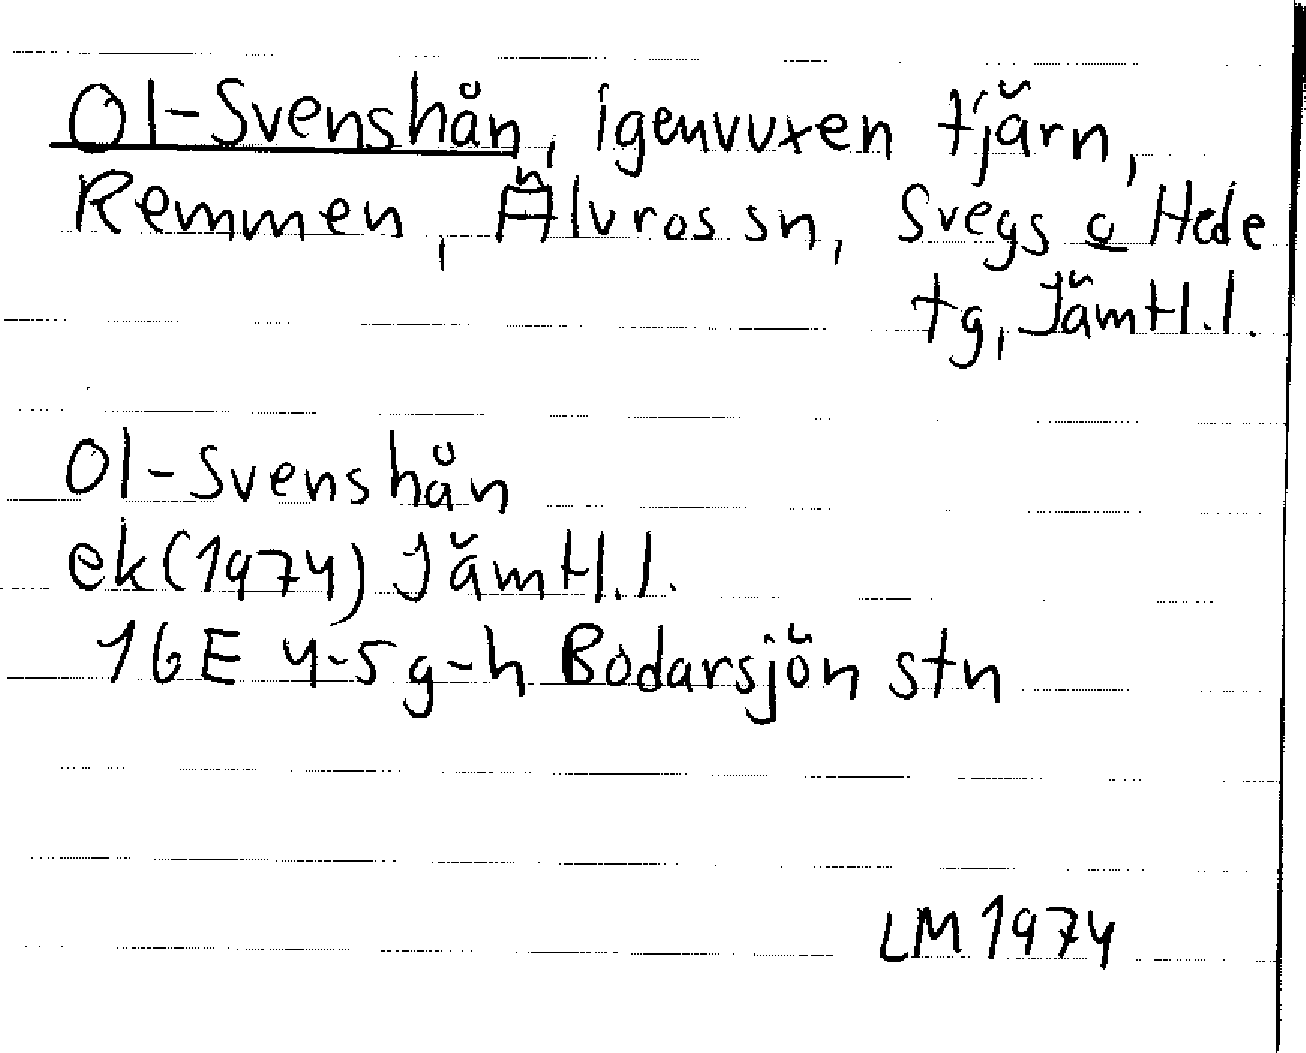 Ol-Svenshån, igenvuxen tjärn,
Remmen, Älvros sn, Svegs o Hede
tg, Jämtl.l.
Ol-Svenshån
ek(1974) Jämtl.l.
16E 4-5g-h Bodarsjön stn
LM 1974